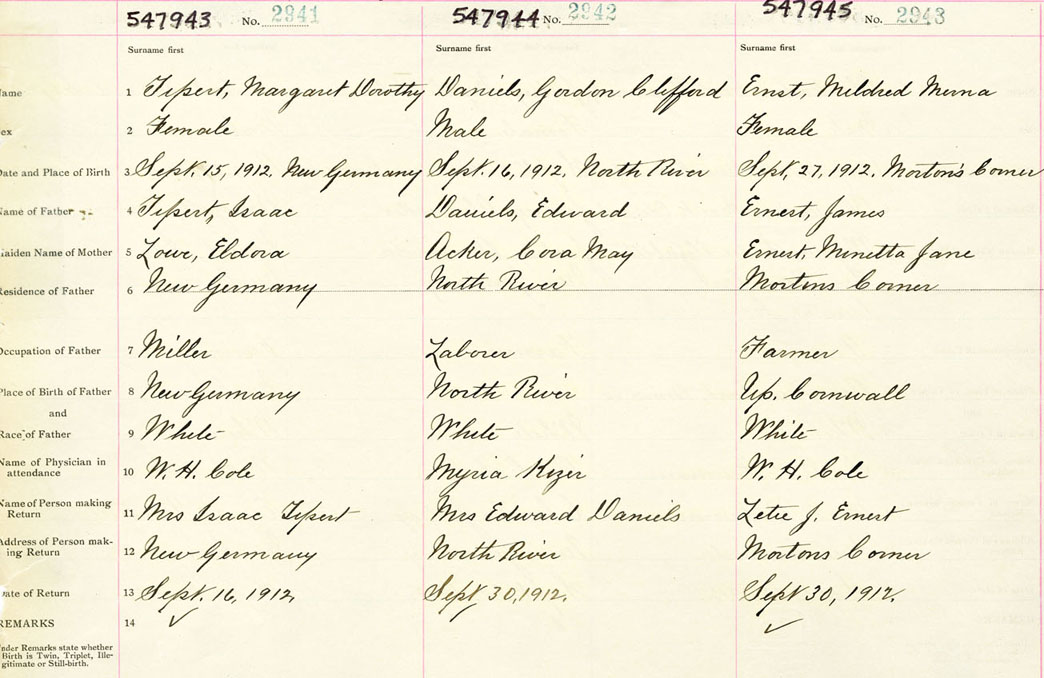 547943 No. 2941 547944 No. 2942 547945 No. 2943
Surname first Surname first Surname first
ame 1 Tipert, Margaret Dorothy Daniels, Gordon Clifford Ernst, Mildred Merna
ex 2 Female Male Female
Date and Place of Birth 3 Sept. 15, 1912. New Germany Sept. 16, 1912. North River Sept. 27, 1912. Morton's Corner
Name of Father 4 Tipert, Isaac Daniels, Edward Ernest, James
aiden Name of Mother 5 Lowe, Eldora Acker, Cora May Ernest, Minetta Jane
Residence of Father 6 New Germany North River Mortons Corner
Occupation of Father 7 Miller Laborer Farmer
Place of Birth of Father 8 New Germany North River Up. Cornwall
and
Race of Father 9 White White White
Name of Physician in
attendance 10 W. H. Cole Myria Kizer W. H. Cole
Name of Person making
Return 11 Mrs Isaac Tipert Mrs Edward Daniels Letie J. Ernest
Address of Person mak-
ing Return 12 New Germany North River Mortons Corner
ate of Return 13 Sept. 16, 1912. Sept 30, 1912. Sept 30, 1912.
REMARKS 14
nder Remarks state whether
Birth is Twin, Triplet, Ille-
gitimate or Still-birth.